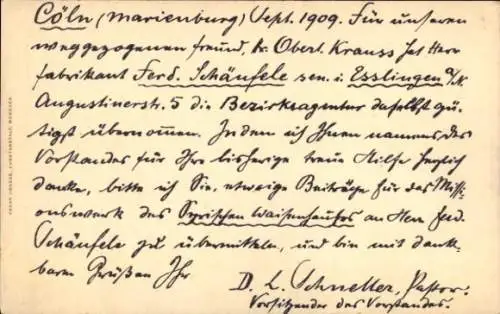 Cöln (Marienburg) Sept. 1909. Für unseren
weggezogenen Freund, Hr. Oberl. Krauss hat Herr
Fabrikant Ferd. Schäufele sen. i. Esslingen a/N.
Augustinerstr. 5 die Bezirksagentur daselbst gü-
tigst übernommen. Indem ich Ihnen namens des
Vorstandes für Ihre bisherige treue Hilfe herzlich
danke, bitte ich Sie, etwaige Beiträge für das Missi-
onswerk des Syrischen Waisenhauses an Herr Ferd.
Schäufele zu übermitteln, und bin mit dank-
baren Grüßen Ihr
D. L. Schneller, Pastor.
Vorsitzender des Vorstandes.